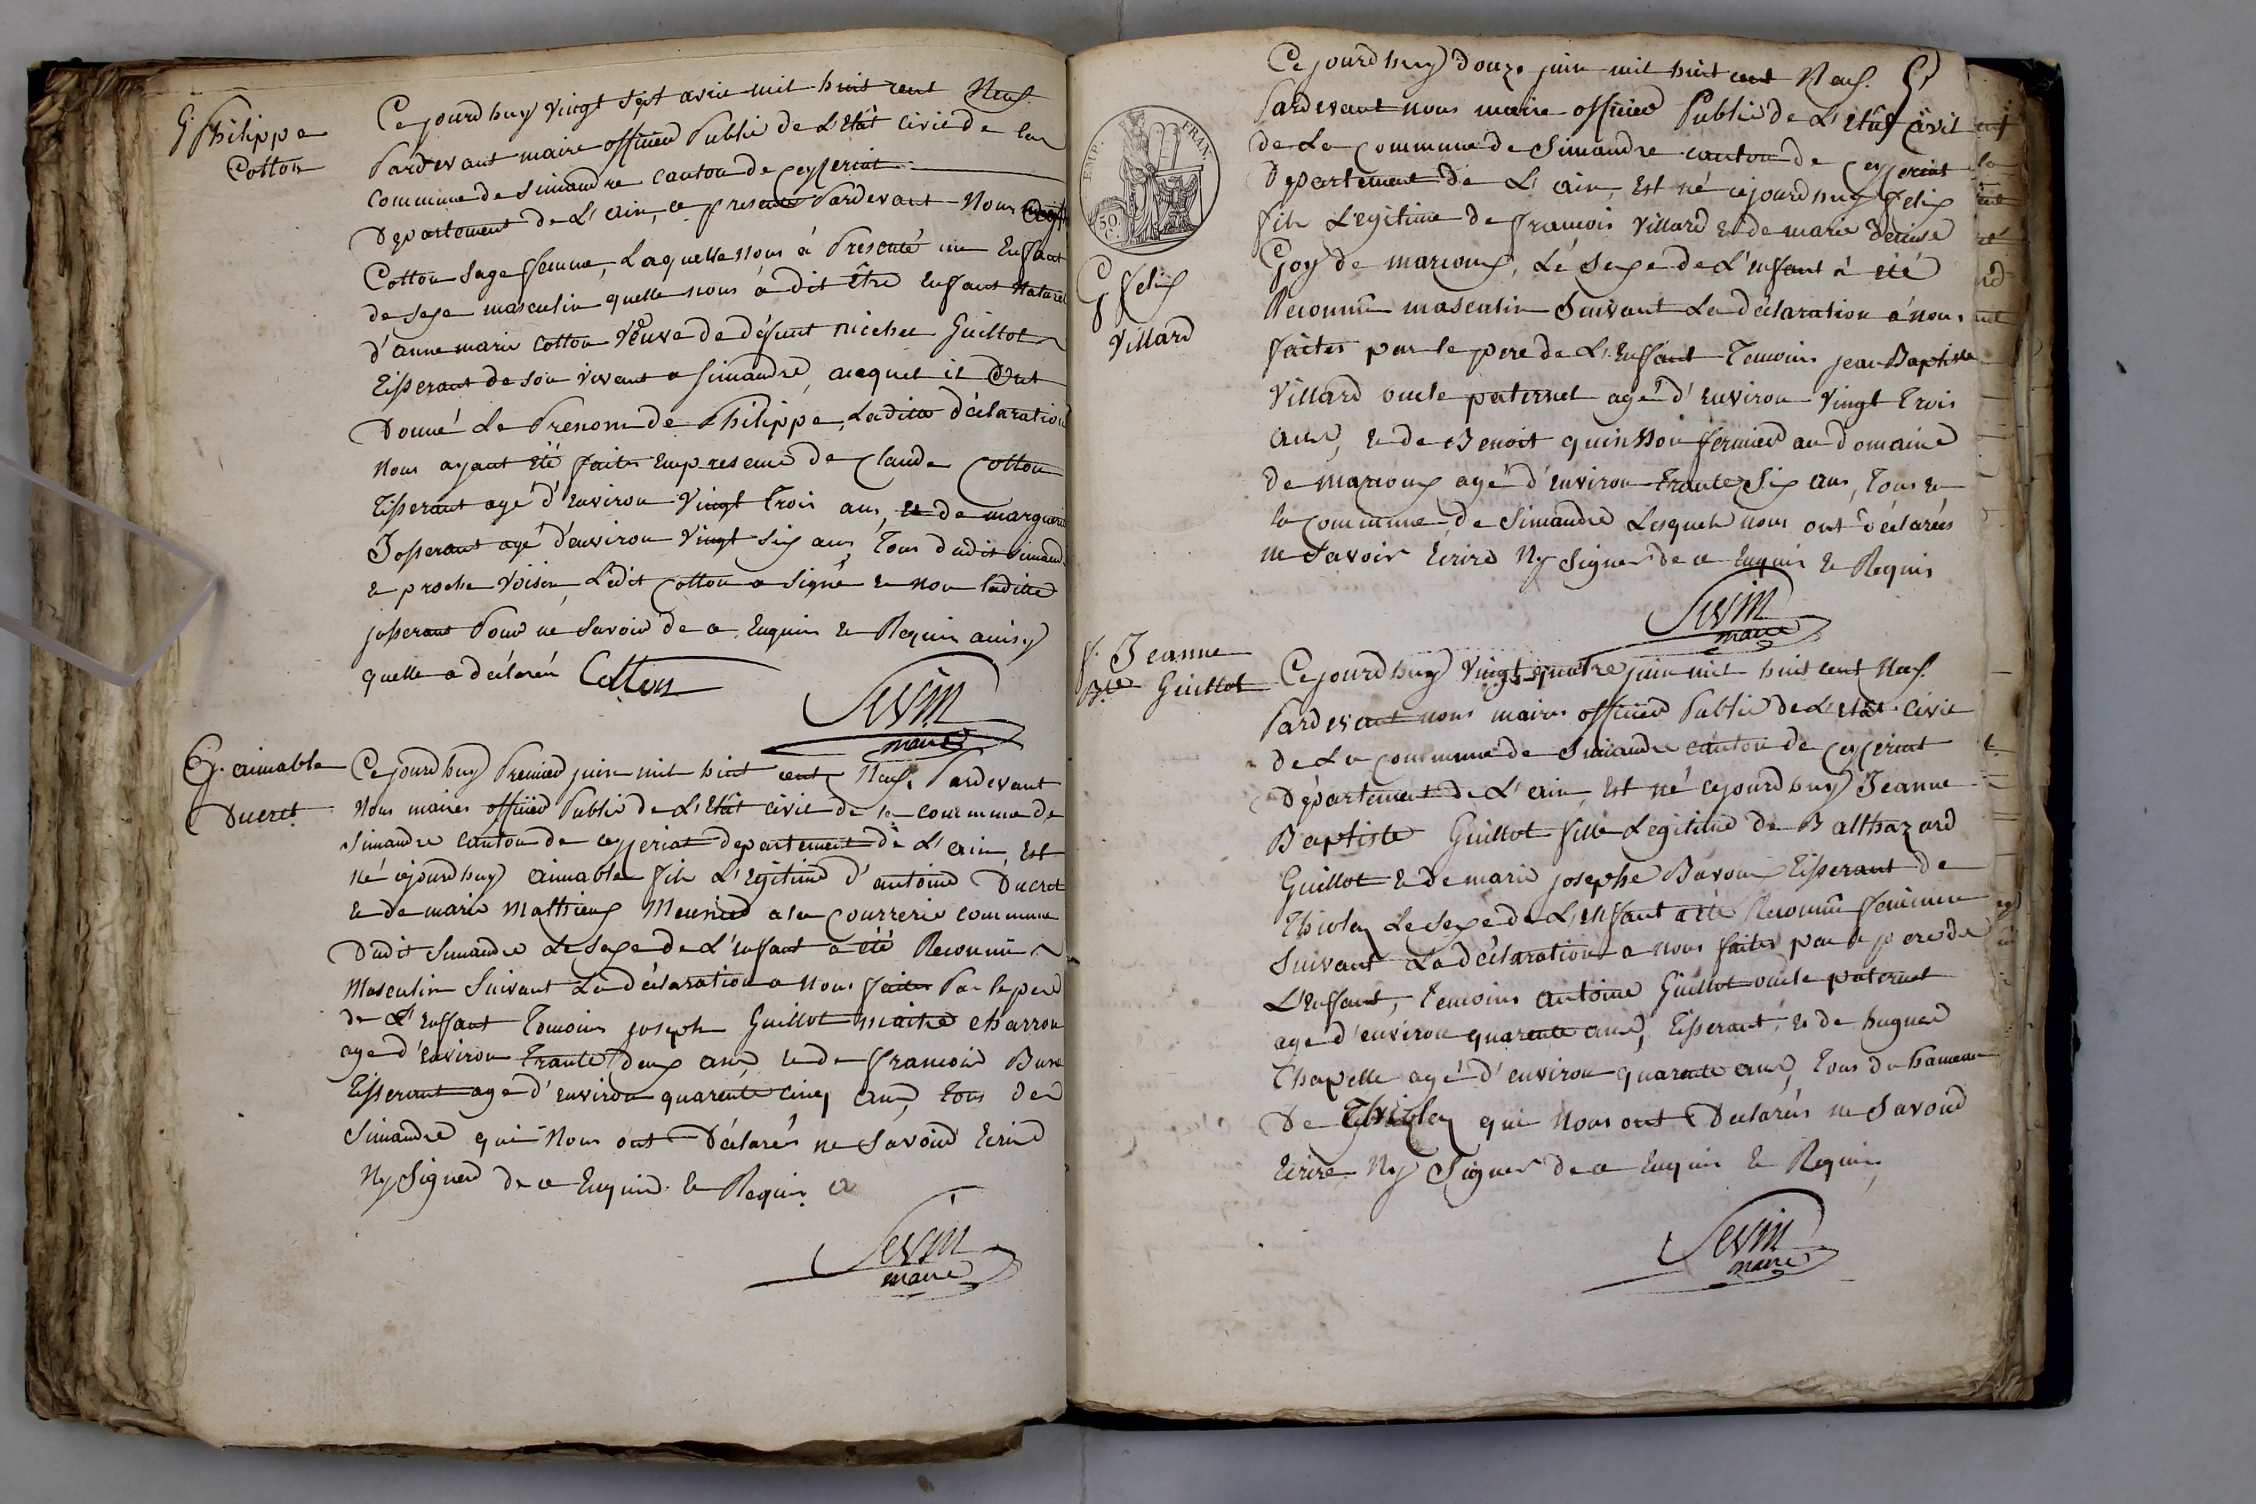 G. Philippe
Cotton
Cejourdhuy vingt sept avril mil huit cent Neuf.
Pardevant maire officier Public de L'Etat Civil de la
Commune de Simandre canton de ceyzeriat
Département de L'ain, a presenté Pardevant Nous
Cotton Sage femme, Laquelle nous à Presenté un Enfant
de sexe masculin quelle nous à dit être Enfant Naturel
d'anne marie Cotton Veuve de défunt michel Guillot
Tisserant de son vivant a simandre, auquel il Ont
Donné Le Prenom de Philippe, Laditte déclaration
Nous ayant été faites En presence de Claude Cotton
Tisserant agé d'Environ Vingt Trois ans, et de marguerit
Josserant agé d'environ Vingt Six ans, Tous dudit simandr
et proche Voisin, Ledit Cotton a Signé et non laditte
josserant Pour ne Savoir de ce Enquis et Requis ainsy
quelle a déclaréé Cotton
Sevin
maire
G. aimable
Ducret
Cejourdhuy Premier juin mil huit cent Neuf, Pardevant
Nous maires officier Public de L'Etat civil de la commune de
Simandre Canton de ceyzeriat departement de L'ain, Est
Né cejourdhuy aimable fils L'egitime d'antoine Ducret
et de marie Mathieux Meunier a la Courrerie commune
Dudit Simandre Le Sexe de L'enfant a été Reconnu
Masculin Suivant La déclaration a Nous faites Par le pere
de L'Enfant Temoins joseph Guillot maitre charron
age d'Environ Trante deux ans, et de francois Bune
Tisserant age d'environ quarente cinq ans, tous de
Simandre qui Nous ont Déclarés ne Savoir Ecrire
Ny Signer de ce Enquis et Requis
Sevin
maire
Cejourdhuy Douze juin mil huit cent Neuf.
Pardevant nous maire officier Public de L'Etat Civil
EMP. FRAN.
50 C.
de La Commune de Simandre canton de ceyzeriat
Departement de L'ain, Est né cejourdhuy felix
fils L'egitime de francois Villard et de marie denise
G. felix
Villard
Goy de marcoux, Le Sexe de L'enfant à été
Reconnu masculin Suivant La déclaration à nous
faites par le pere de L'Enffant Temoins jean Baptiste
Villard oncle paternel agé d'Environ Vingt Trois
ans, et de Benoit quinson fermier au domaine
de marcoux agé d'Environ trante Six ans, Tous de
la Commune de Simandre Lesquels nous ont déclarées
ne Savoir Ecrire Ny Signer de ce Enquis et Requis
Sevin
maire
f. Jeanne
Bte Guillot
Cejourdhuy Vingt quatre juin mil huit cent Neuf.
Pardevant nous maires officier Public de L'Etat Civil
de La Commune de Simandre canton de ceyzeriat
Département de L'ain, Est né cejourdhuy Jeanne
Baptiste Guillot fille Legitime de Balthazard
Guillot et de marie josephe Bavoux Tisserant de
Thiolex Le Sexe de L'enfant a été Reconnu feminin
Suivant La déclaration a nous faites par le pere de
L'Enfant, Temoins antoine Guillot oncle paternel
age d'environ quarente ans, Tisserant, et de hugues
Chapelle agé d'environ quarente ans, tous du hameau
De Thiolex qui Nous ont Declarés ne Savoir
Ecrire Ny Signer de ce Enquis et Requis,
Sevin
maire